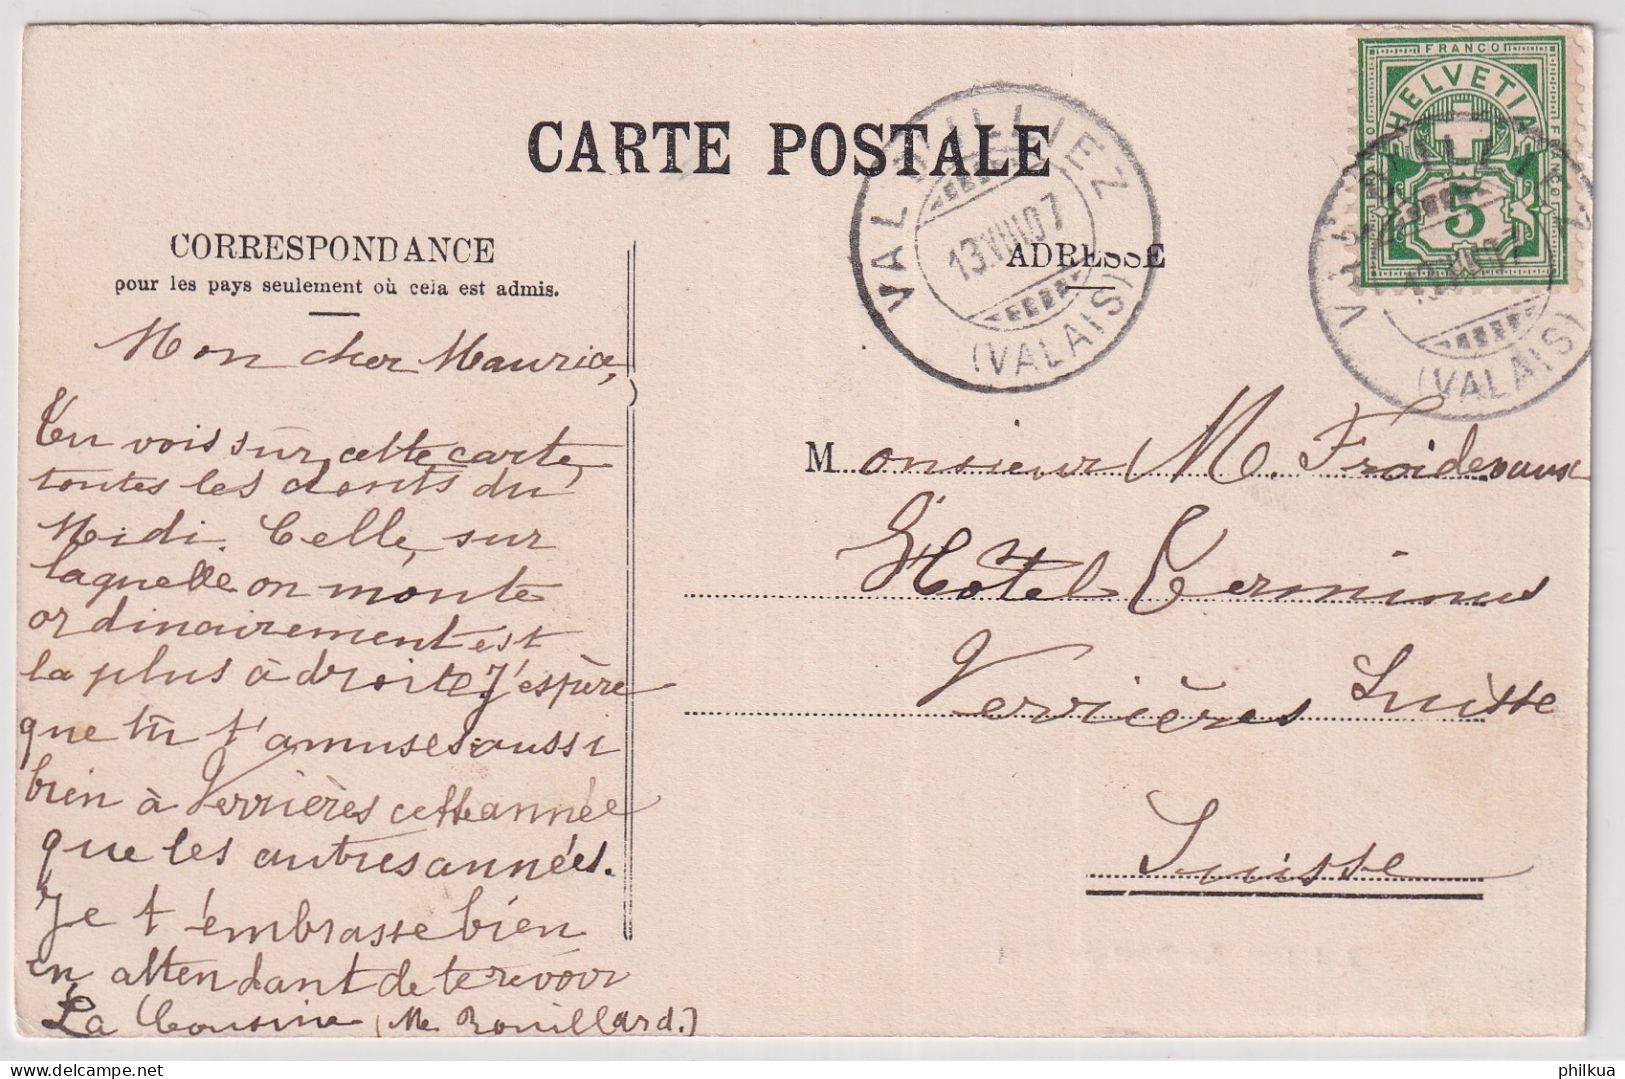 CARTE POSTALE
CORRESPONDANCE
pour les pays seulement où cela est admis.
Mon cher Maurice,
Tu vois sur cette carte,
toutes les dents du
Midi. Celle, sur
laquelle on monte
ordinairement est
la plus à droite. J'espère
que tu t'amuses aussi
bien à Verrières cette année
que les autres années.
Je t'embrasse bien
en attendant de te revoir
La Cousine (M. Rouillard.)
ADRESSE
Monsieur M. Froidevaux
Hôtel Terminus
Verrières Suisse
Suisse
VAL D'ILLIEZ
13.VIII.07
(VALAIS)
FRANCO
HELVETIA
FRANCO
5
VAL D'ILLIEZ
13.VIII.07
(VALAIS)
philkua